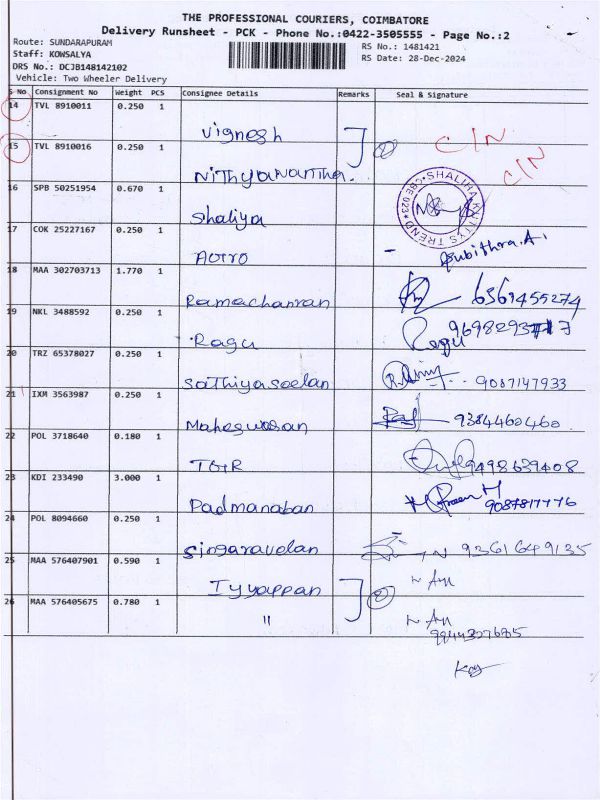 THE PROFESSIONAL COURIERS, COIMBATORE
Delivery Runsheet - PCK - Phone No.:0422-3505555 - Page No.:2
Route: SUNDARAPURAM
RS No.: 1481421
Staff: KOWSALYA
RS Date: 28-Dec-2024
DRS No.: DCJB148142102
Vehicle: Two Wheeler Delivery
S No Consignment No Weight PCS Consignee Details Remarks Seal & Signature
14 TVL 8910011 0.250 1 Vignesh C/N
15 TVL 8910016 0.250 1 Nithyanantha. ② C/N
16 SPB 50251954 0.670 1 Shaliya
17 COK 25227167 0.250 1 -
18 MAA 302703713 1.770 1 Ramachanran 6369455274
19 NKL 3488592 0.250 1 Ragu Ragu
20 TRZ 65378027 0.250 1 Sathiyaseelan 9087147933
21 IXM 3563987 0.250 1 Maheswaran 9384460460
22 POL 3718640 0.180 1 9498639408
23 KDI 233490 3.000 1 Padmanaban 9087817776
24 POL 8094660 0.250 1 Singaravelan 9361649135
25 MAA 576407901 0.590 1 Iyyappan ②
26 MAA 576405675 0.780 1 "